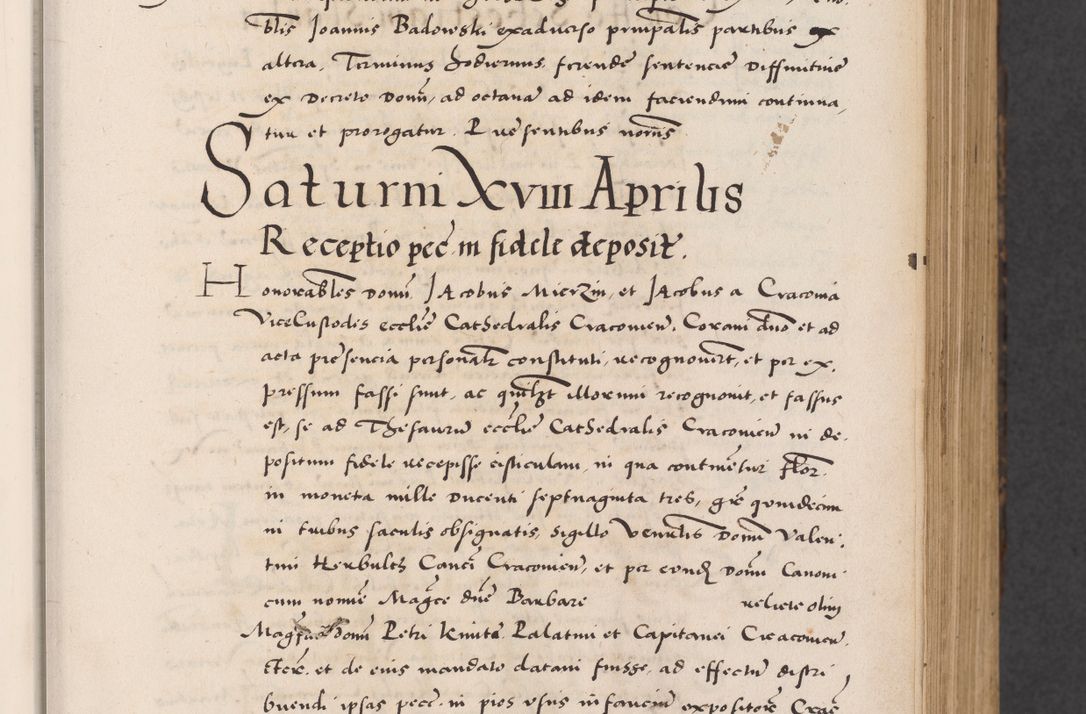 blis Joannis Badowski exadverso principalis partibus ex
altera, Terminus hodiernus ferende sentencie diffinitive
ex decreto domi, ad octava ad idem faciendum continua,
tur et prorogatur. Presentibus noriis
Saturni XVIII Aprilis
Receptio pec. in fidele deposit.
Honorabiles domi Jacobus Mierzin, et Jacobus a Cracovia
Vicecustodes ecclie Cathedralis Cracovien. Coram duo et ad
acta presencia personalr constituti, recognoverunt, et per ex,
pressum fassi sunt, ac quilibet illorum recognovit, et fassus
est, se ad Thesauru ecclie Cathedralis Cracovien in de,
positum fidele recepisse cisticulam, in qua continentur flor.
in moneta mille ducenti septuaginta tres, gre quindecim
in tribus saculis obsignatis, sigillo Venerlis domi Valen,
tini Herbultz Canci Cracovien, et per eunde domi Canoni
cum nomie Magce dne Barbare relicte olim
Magci domi Petri Kmita Palatini et Capitanei Cracovien.
etcre. et de eius mandato datam fuisse, ad effectu distri
buendi ipsas pecc. in pios usus in favcim expositore Crac